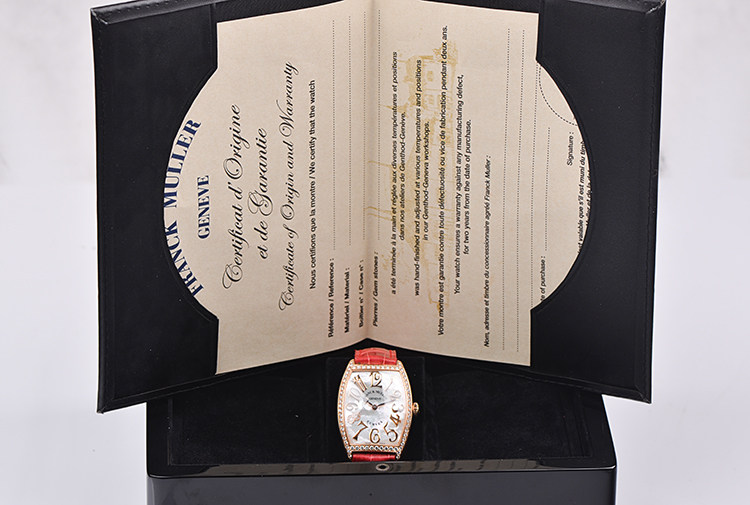 FRANCK MULLER
GENEVE
Certificat d'Origine
et de Garantie
Certificate of Origin and Warranty
Nous certifions que la montre / We certify that the watch
Référence / Reference :
Matériel / Material :
Boîtier n° / Case n° :
Pierres / Gem stones :
a été terminée à la main et réglée aux diverses températures et positions
dans nos ateliers de Genthod-Genève.
was hand-finished and adjusted at various temperatures and positions
in our Genthod-Geneva workshops.
Votre montre est garantie contre toute défectuosité ou vice de fabrication pendant deux ans.
Your watch ensures a warranty against any manufacturing defect,
for two years from the date of purchase.
Nom, adresse et timbre du concessionnaire agréé Franck Muller :
ate of purchase :
Signature :
t valable que s'il est muni du
12
2
3
4
5
6
7